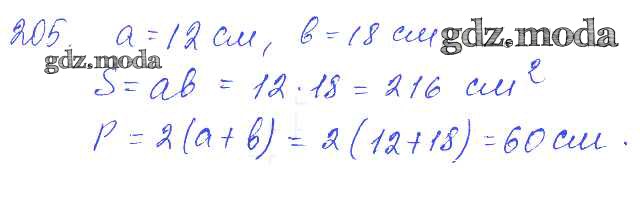 205. a = 12 см, в = 18 см gdz.moda
gdz.moda
S = ав = 12 · 18 = 216 см²
P = 2(а + в) = 2(12 + 18) = 60 см.